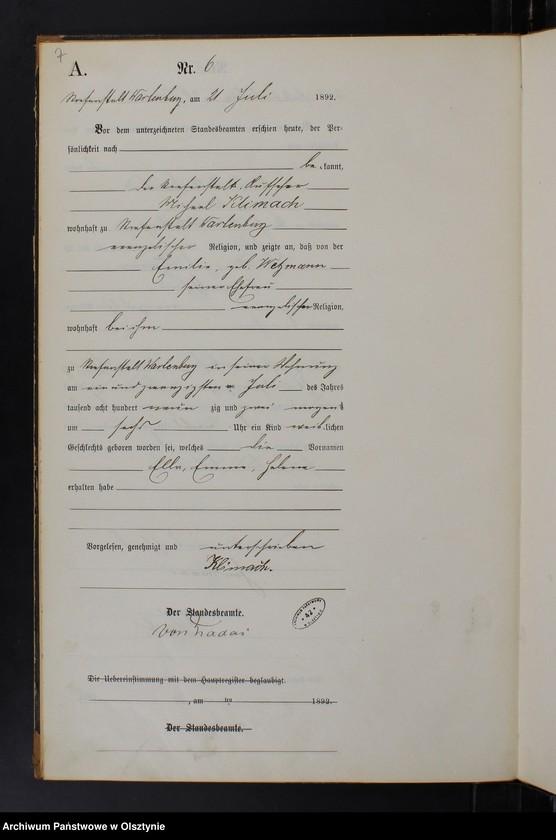 7
A. Nr. 6
Strafanstalt Wartenburg, am 21 Juli 1892.
Vor dem unterzeichneten Standesbeamten erschien heute, der Per-
sönlichkeit nach
be kannt,
der Strafanstalts-Aufseher
Michael Klimach
wohnhaft zu Strafanstalt Wartenburg
evangelischer Religion, und zeigte an, daß von der
Emilie, geb. Wetzmann
seiner Ehefrau
evangelischer Religion,
wohnhaft bei ihm
zu Strafanstalt Wartenburg in seiner Wohnung
am ein und zwanzigsten Juli des Jahres
tausend acht hundert neun zig und zwei morgens
um sechs Uhr ein Kind weib lichen
Geschlechts geboren worden sei, welches die Vornamen
Ella, Emma, Helene
erhalten habe
Vorgelesen, genehmigt und unterschrieben
Klimach.
Der Standesbeamte.
Die Uebereinstimmung mit dem Hauptregister beglaubigt.
, am ten 1892.
Der Standesbeamte.
Archiwum Państwowe w Olsztynie